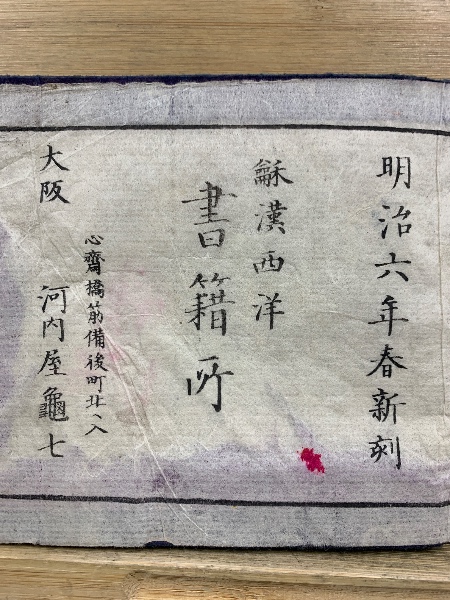 明治六年春新刻
龢漢西洋
書籍所
心齋橋筋備後町北ヘ入
大阪 河内屋龜七